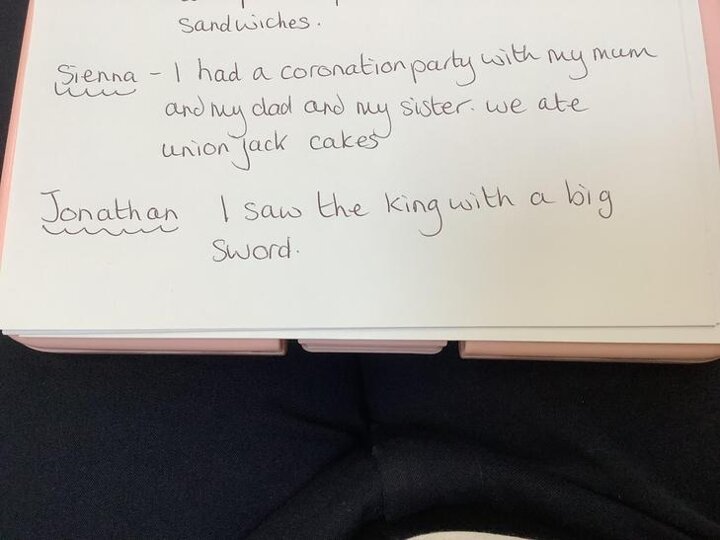 sandwiches.
Sienna - I had a coronation party with my mum
and my dad and my sister. we ate
union jack cakes
Jonathan I saw the king with a big
Sword.